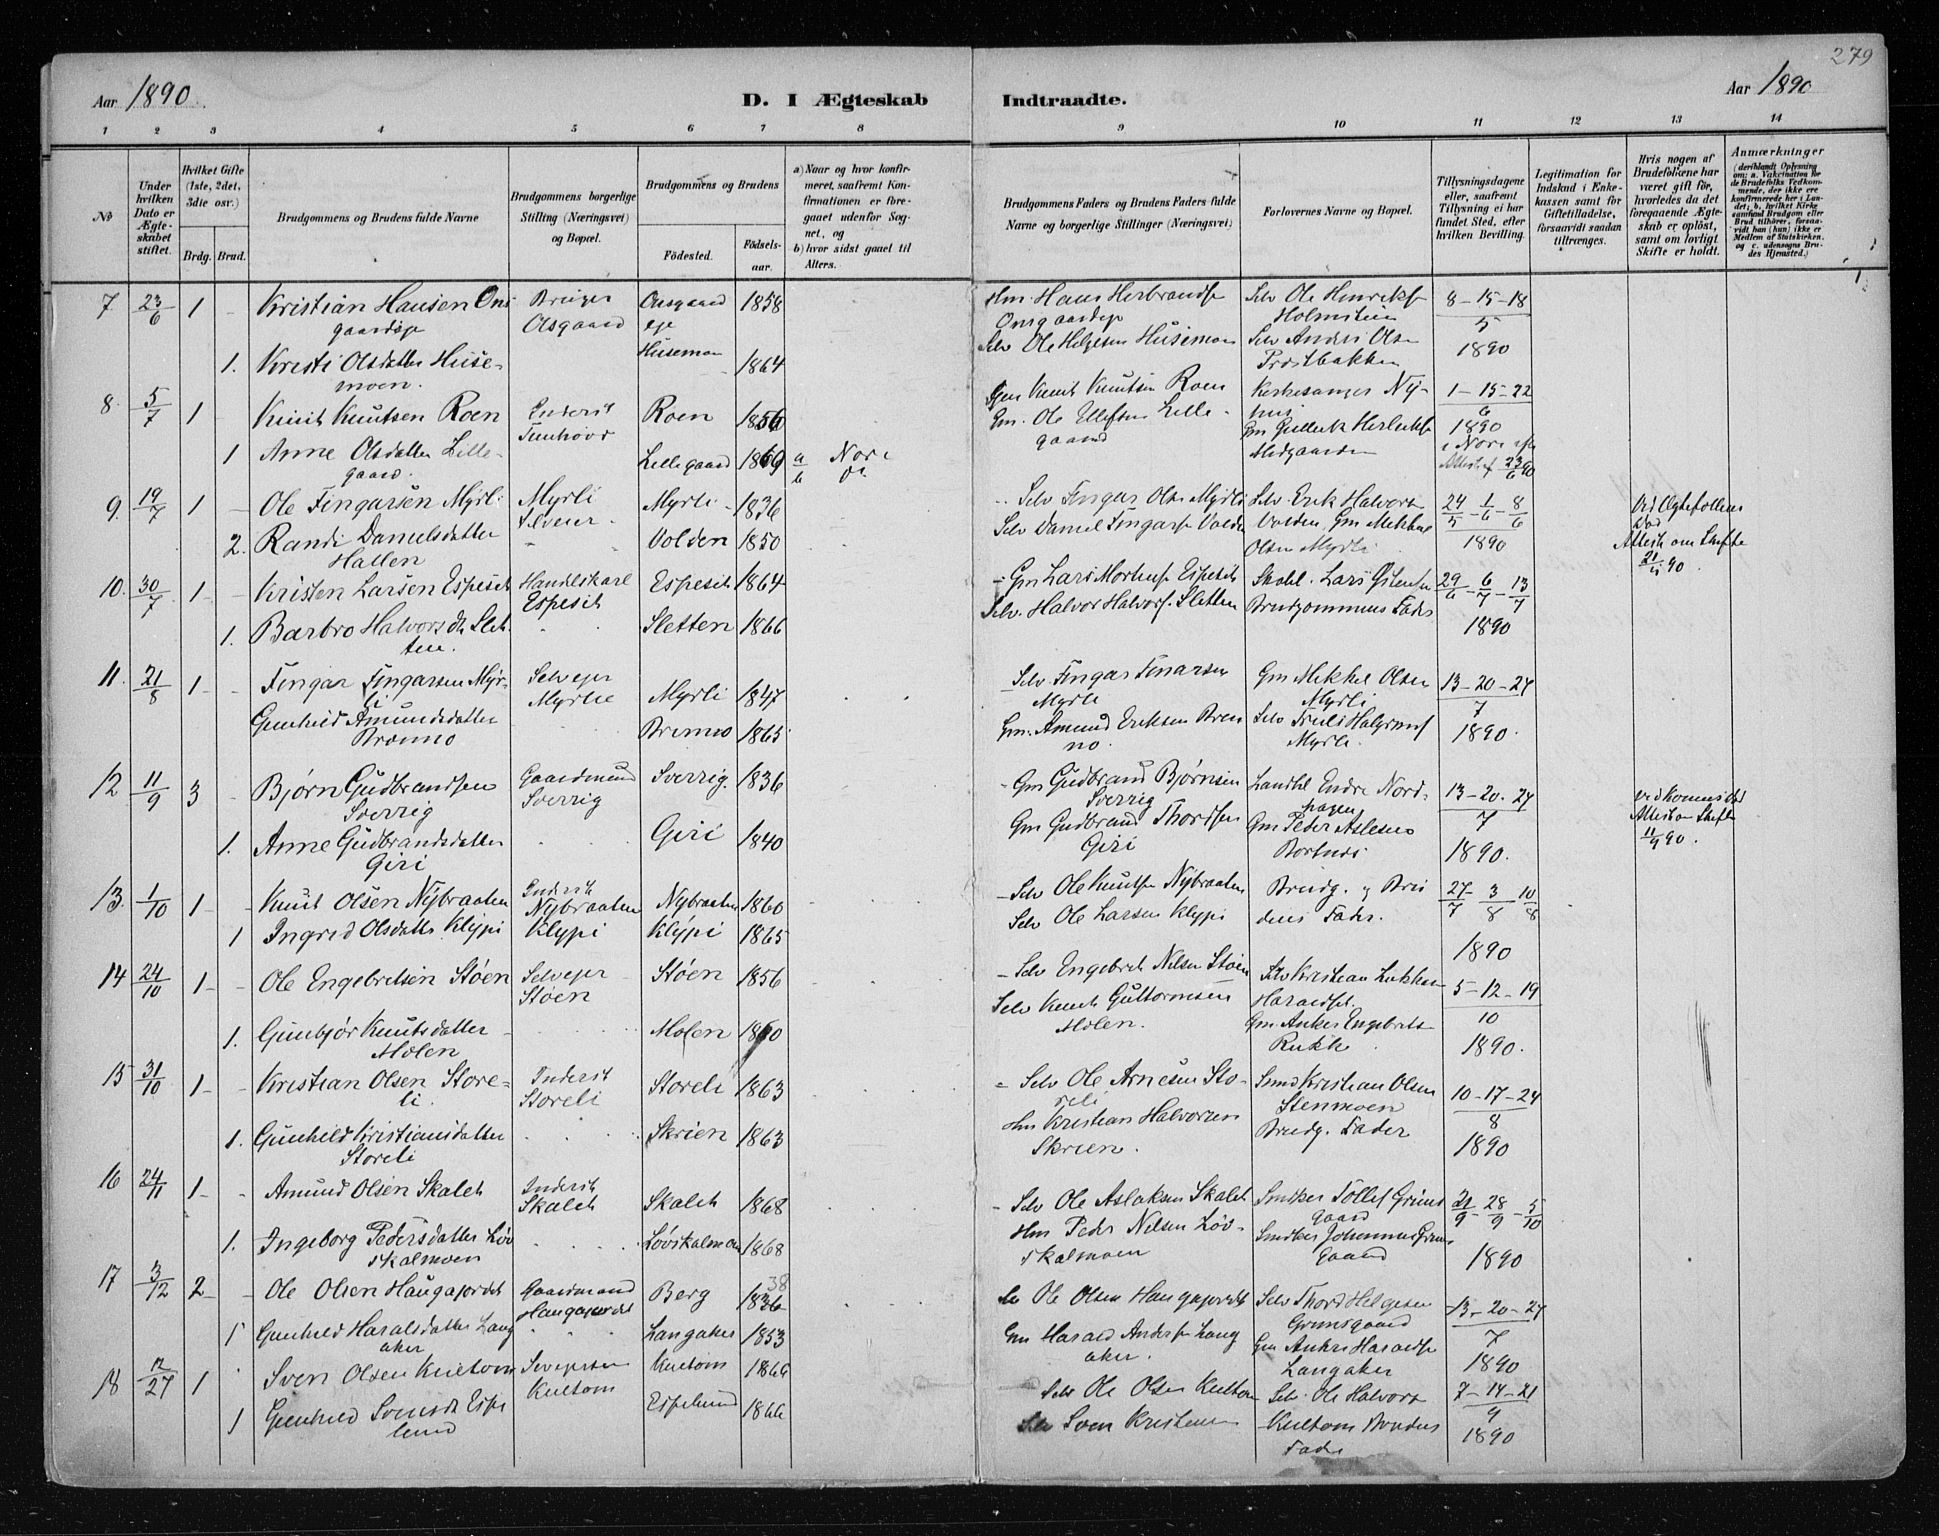 279
Aar 1890.
D. I Ægteskab Indtraadte.
Aar 1890
1 2 3 4 5 6 7 8 9 10 11 12 13 14
№
Under hvilken Dato er Ægteskabet stiftet.
Hvilket Gifte (1ste, 2det, 3die osv.)
Brdg. Brud.
Brudgommens og Brudens fulde Navne
Brudgommens borgerlige Stilling (Næringsvei) og Bopæl.
Brudgommens og Brudens
Födested.
Födselsaar.
a) Naar og hvor konfirmeret, saafremt Konfirmationen er foregaaet udenfor Sognet, og
b) hvor sidst gaaet til Alters.
Brudgommens Faders og Brudens Faders fulde Navne og borgerlige Stillinger (Næringsvei)
Forlovernes Navne og Bopæl.
Tillysningsdagene eller, saafremt Tillysning ei har fundet Sted, efter hvilken Bevilling.
Legitimation for Indskud i Enkekassen samt for Giftetilladelse, forsaavidt saadan tiltrænges.
Hvis nogen af Brudefolkene har været gift för, hvorledes da det foregaaende Ægteskab er oplöst, samt om lovligt Skifte er holdt.
Anmærkninger
(deriblandt Oplysning om: a. Vakcination for de Brudefolks Vedkommende, der ikke ere konfirmerede her i Landet; b. hvilket Kirkesamfund Brudgom eller Brud tilhörer, forsaavidt han (hun) ikke er Medlem af Statskirken, og c. udensogns Brudes Hjemsted.)
7. 23/6 1 - Kristian Hansen Onsgaardeje Onsgaard eje 1858 Hm. Hans Herbrands. Onsgaardeje Selv Ole Henriks. 8-15-18/5 1890
1. Kristi Olsdatter Husemoen. Husemoen 1864 Selv Ole Helgesen Husemoen Selv Anders Olsen
8. 5/7 1 Knut Knutsen Roen Inderst Roen 1856 Knut Knutsen Roen Kirkesanger Nyhus 1-15-22/6 1890
1 Anne Olsdatter Lillegaard. Lillegaard 1869 a/b Nore Gm. Ole Ellefsen Lillegaard i Nore Attest af 23/6 90
9. 19/7 1 - Ole Fingarsen Myrli Myrli Selveier Myrli 1836 Selv Fingar Olsen Myrli Selv Erik Halvors. Volden, Gm Mekkel Olsen Myrli 24/5-1/6-8/6 1890
2. Randi Danielsdatter Hallen Volden 1850 Selv Daniel Fingars. Volden Ved Ægtefellens Død Attest om Skifte 21/4 90
10. 30/7 1 - Kristen Larsen Espeset Handelskarl Espeset Espeset 1864 Gm Lars Mortens. Espeset Brudgommens Fader 29/6-6/7-13/7 1890
1. Barbro Halvorsdtr. Sletten. Sletten 1866 Selv. Halvor Halvors. Sletten
11. 21/8 1 - Fingar Fingarsen Myrli Selvejer Myrlie Myrli 1847 Selv Fingar Finarsen Myrli Gm Mekkel Olsen Myrli 13-20-27/7 1890.
Gunhild Amundsdatter Bromno Bremno 1865 Gm. Amund Eriksen Bremno. Selv Truls Halgrims. Myrli.
12 11/9 3 - Bjørn Gudbrandsen Sverrig Gaardmand Sverrig Sverrig. 1836 Gm Gudbrand Bjørnsen Sverrig Landhl Endre Nordhagen 13-20-27/7 1890.
1. Anne Gudbrandsdatter Giri Giri 1840 Gm Gudbrand Thordsen Giri Gm Peder Aslesen Bortnes Attest om Skifte 11/9 90.
13. 1/10 1 - Knut Olsen Nybraaten Inderst Nybraaten Nybraaten 1860 Selv Ole Knuts. Nybraaten Brudg. og Brudens Fader. 27/7-3/8-10/8 1890
1 Ingrid Olsdatter Klypi Klypi Klypi 1865 Selv Ole Larsen Klypi
14 24/10 1 - Ole Engebretsen Støen Selvejer Støen Støen 1856 Selv Engebret Nilsen Støen Selv Kristian 5-12-19/10 1890.
1. Gunbjør Knutsdatter Molen Molen 1860 Selv Knut Guttormsen Molen. Gm. Anker Engebrets. Rukke
15 31/10 1 - Kristian Olsen Storeli. Inderst Storeli Storeli 1863 Selv Ole Arnesen Storeli Kristian Olsen Stenmoen 10-17-24/8 1890
1. Gunhild Kristiansdatter Storeli Skrien 1863 Hm Kristian Halvorsen Skrien. Brudg. Fader
16 24/11 1 - Amund Olsen Skalet Inderst Skalet Skalet 1868 Selv Ole Aslaksen Skalet Tollef Grimsgaard 21/9-28/9-5/10 1890
1. Ingeborg Pedersdatter Løvskalmoen Løvskalmoen 1868 Hm Peder Nilsen Løvskalmoen Johannes Grimsgaard
17 3/12 2 - Ole Olsen Haugajordet Gaardmand Haugajordet Berg 1836 38 Ole Olsen Haugajordet Selv Thord Helgesen Grimsgaard 13-20-27/7 1890
1 Gunhild Haralsdatter Langaker Langaker 1853 Gm Harald Anders. Langaker. Gm Anders Haralds. Langaker
18 12/27 1 Sven Olsen Kultom Kultom Kultom 1866 Selv Ole Olsen Kultom Selv. Ole Halvors. Kultom Brudens Fader 7-14-21/9 1890
1 Gunhild Svensdtr. Espelund Espelund 1866 Selv Sven Kristensen